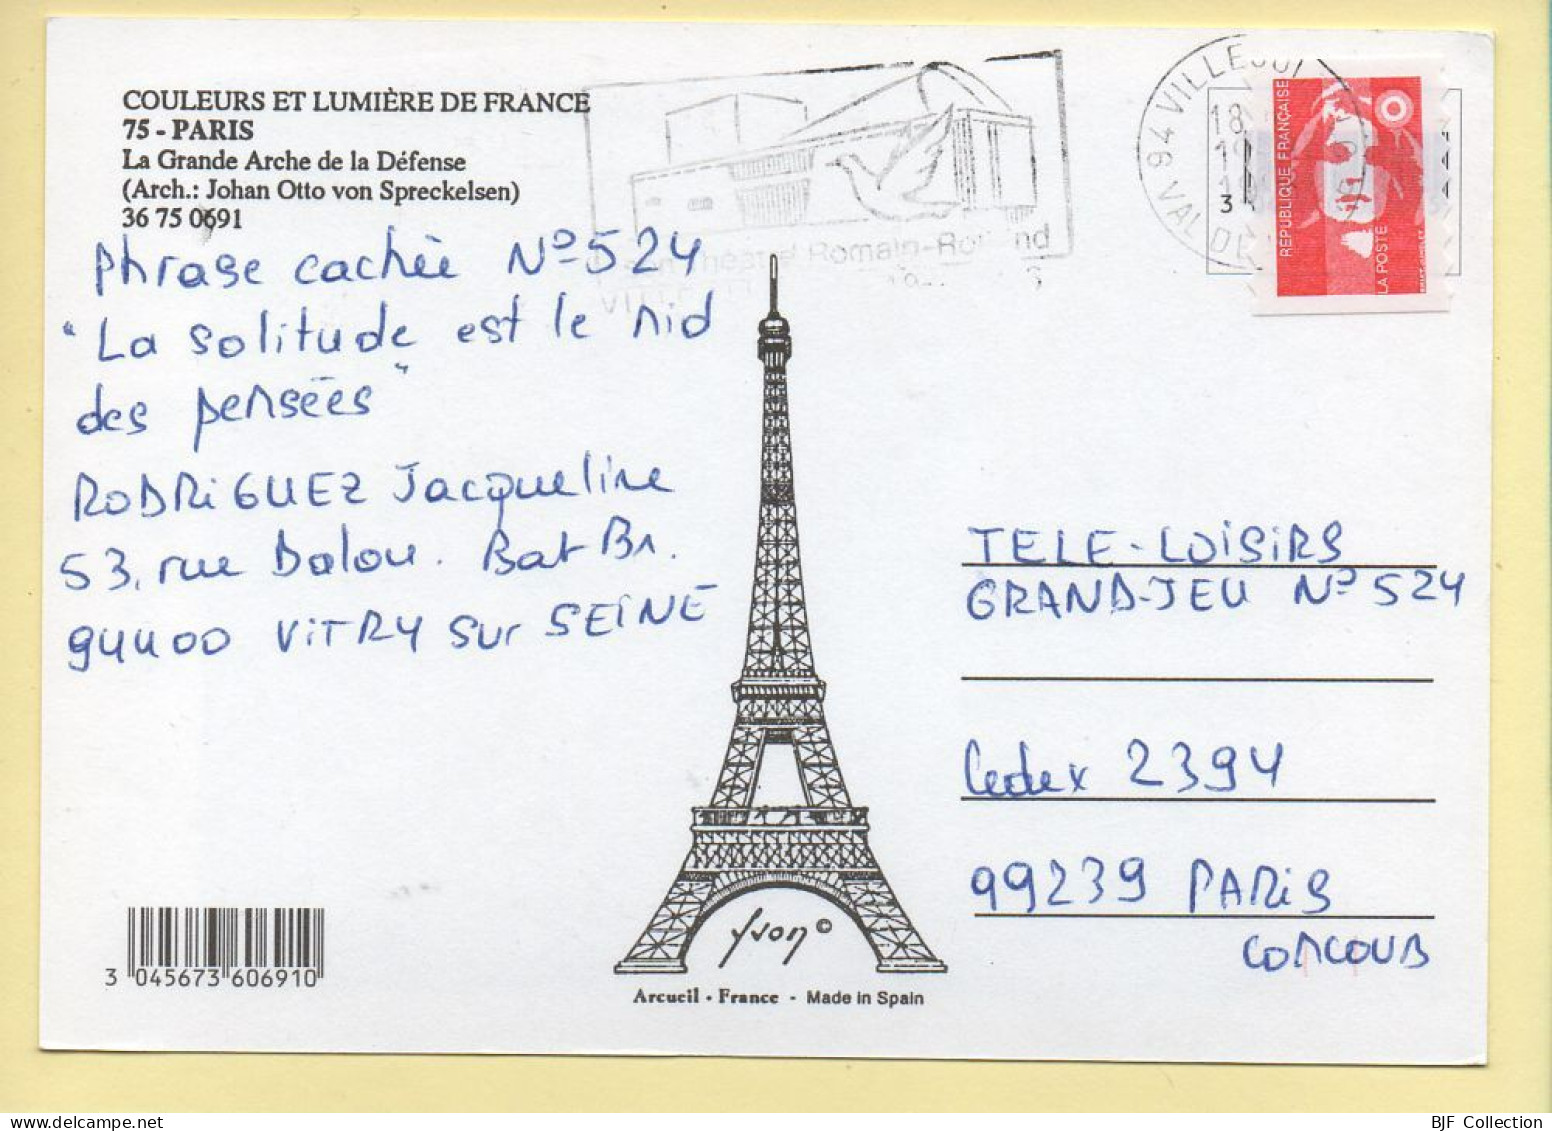 COULEURS ET LUMIÈRE DE FRANCE
75 - PARIS
La Grande Arche de la Défense
(Arch.: Johan Otto von Spreckelsen)
36 75 0691
Phrase cachée N° 524
"La solitude est le nid
des pensées"
RODRiGUEZ Jacqueline
53, rue Dalou. Bat B1.
94400 ViTRY sur SEINE
Théâtre Romain-Rolland
94 VILLEJUIF
VAL DE
18
3
RÉPUBLIQUE FRANÇAISE
LA POSTE
TELE-LOiSiRS
GRAND-JEU N° 524
Cedex 2394
99239 PARiS
CONCOURS
yvon ©
Arcueil - France - Made in Spain
3 045673 606910
BJF Collection